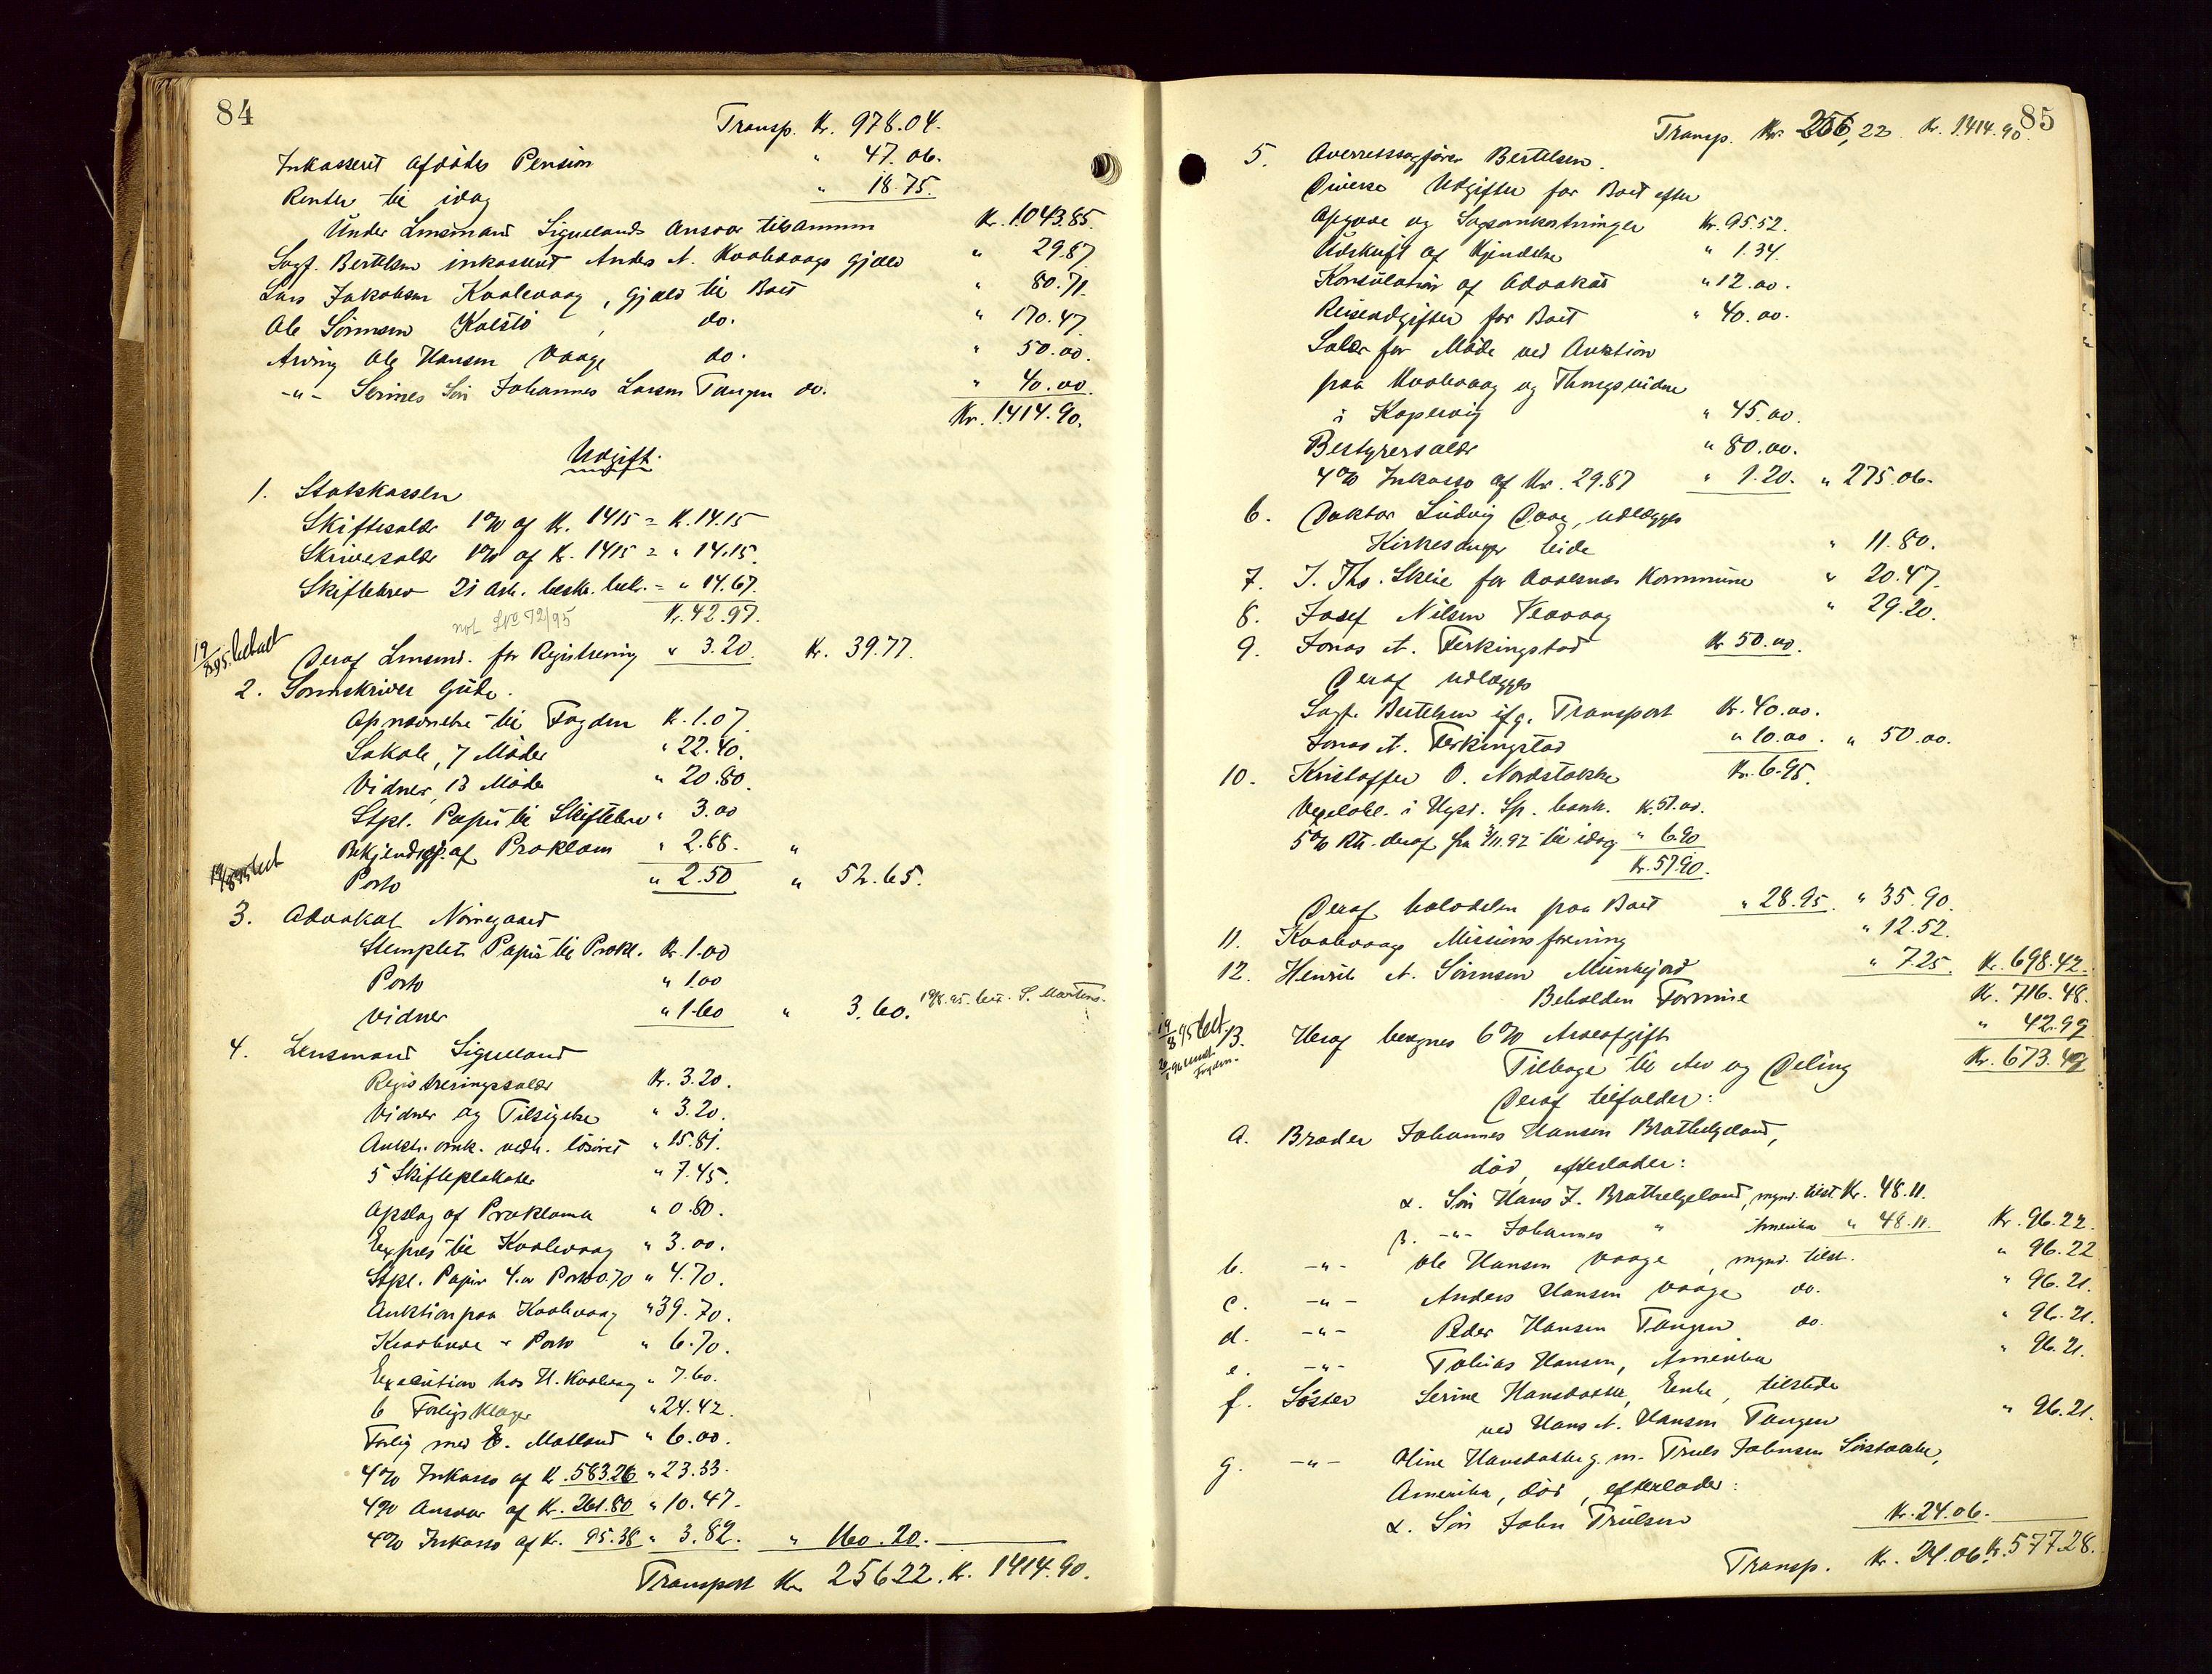 84
Transp. Kr. 978.04.
Inkasseret afdødes Pension " 47.06.
Renter til idag " 18.75.
Under Lensmand Siquelands Ansvar tilsammen Kr. 1043.85.
Sagf. Bertelsen inkasseret Anders A. Kvalevaags Gjæld " 29.87.
Lars Jakobsen Kvalevaag, Gjæld til Boet " 80.71.
Ole Sørensen Kolstø, do. " 170.47.
Arving Ole Hansen Vaage do. " 50.00.
-"- Serines Søn Johannes Larsen Tangen do. " 40.00.
Kr. 1414.90.
Udgift.
1. Statskassen
Skiftesalær 1% af Kr. 1415 = K. 14.15
Skriversalær 1% af K. 1415 = " 14.15.
Skiftebrev 21 Ark. beskr. bek. = " 14.67.
Kr. 42.97.
not No 72/95
19/8 95. betalt
Deraf Lensmd. for Registrering " 3.20. Kr. 39.77.
2. Sorenskriver Gude.
Opnævnelse til Fogden K. 1.07.
Lokale, 7 Møder " 22.40.
Vidner, 13 Møder " 20.80.
Stpl. Papir til Skiftebrev " 3.00
Bekjendtgj. af Proklam " 2.88. "
19/8 95 bet
Porto " 2.50 " 52.65.
3. Advokat Nørregaard
Stemplet Papir til Prokl. Kr. 1.00
Porto " 1.00
Vidner " 1.60 " 3.60. 19/8.95. bet. S. Martens.
4. Lensmand Siqueland
Registreringssalær Kr. 3.20.
Vidner og Tilsigelse " 3.20.
Auktr. omk. vedk. løsøret " 15.81.
5 Skifteplakater " 7.45.
Opslag af Proklama " 0.80.
Expres til Kvalevaag " 3.00.
Stpl. Papir 4.00 Porto 0.70 " 4.70.
Auktion paa Kvalevaag " 39.70.
Kravbreve & Porto " 6.70.
Execution hos H. Kvalevaag " 7.60.
6 Forligsklager " 24.42.
Forlig med E. Matland " 6.00.
4% Inkasso af K. 583.26 " 23.33.
4% Ansvar af Kr. 261.80 " 10.47.
4% Inkasso af Kr. 95.38 " 3.82. " 160.20.
Transport Kr 256.22. K. 1414.90.
85
Transp. Kr. 256,22 Kr. 1414.90.
5. Overretssagfører Bertelsen.
Diverse Udgifter for Boet efter
Opgave og Sagsomkostninger Kr. 95.52.
Udskrift af Kjendelse " 1.34.
Konsulation af Advokat " 12.00.
Reiseudgifter for Boet " 40.00.
Salær for Møde ved Auktion
paa Kvalevaag og Thingsvidne
i Kopervig " 45.00.
Bestyrersalær " 80.00.
4% Inkasso af Kr. 29.87 " 1.20. " 275.06.
6. Doktor Ludvig Daae, udlægges
Kirkesanger Eide " 11.80.
7. J. Ths. Skeie for Avaldsnes Kommune " 20.47.
8. Josef Nilsen Veavaag " 29.20.
9. Jonas A. Ferkingstad Kr 50.00.
Deraf udlægges
Sagf. Bertelsen ifg. Transport Kr. 40.00.
Jonas A. Ferkingstad " 10.00. " 50.00.
10. Kristoffer O. Nordstokke Kr. 6.95.
Vexelobl. i Hgsd. Sp. bank. K. 51.00.
5% Rth. deraf fra 3/11.92 til idag " 6.90
Kr. 57.90.
Deraf halvdelen paa Boet " 28.95. " 35.90.
11. Kvalevaags Missionsforening " 12.52.
12. Henrik A. Sørensen Munkejord " 7.25. Kr. 698.42.
Beholden Formue Kr. 716.48.
19/8 95 bet.
13. Heraf beregnes 6% Arveafgift " 42.99
Tilbage til Arv og Deling Kr. 673.49
Deraf tilfalder:
a. Broder Johannes Hansen Brathelgeland,
død, efterlader:
α. Søn Hans J. Brathelgeland, mynd. tilst. Kr. 48.11.
β. -"- Johannes " Amerika " 48.11. Kr. 96.22.
b. -"- Ole Hansen Vaage, mynd. tilst. " 96.22
c. -"- Anders Hansen Vaage do. " 96.21.
d. -"- Peder Hansen Tangen do. " 96.21.
e. -"- Tobias Hansen, Amerika " 96.21.
f. Søster Serine Hansdatter, Enke, tilstede
ved Hans A. Hansen Tangen " 96.21.
g. -"- Oline Hansdatter g. m. Truls Johnsen Sørstokke,
Amerika, død, efterlader:
α. Søn John Trulsen Kr. 24.06.
Transp. Kr. 24.06 Kr. 577.28.